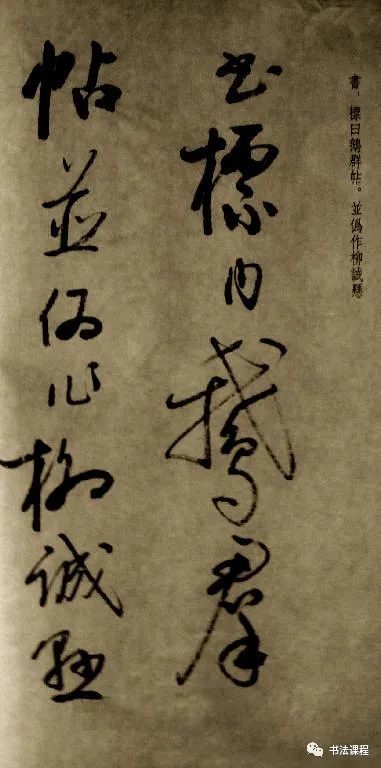 書，標曰鵝群帖。並偽作柳誠懸
书標曰鵝群
帖並偽作柳誠懸
书法课程